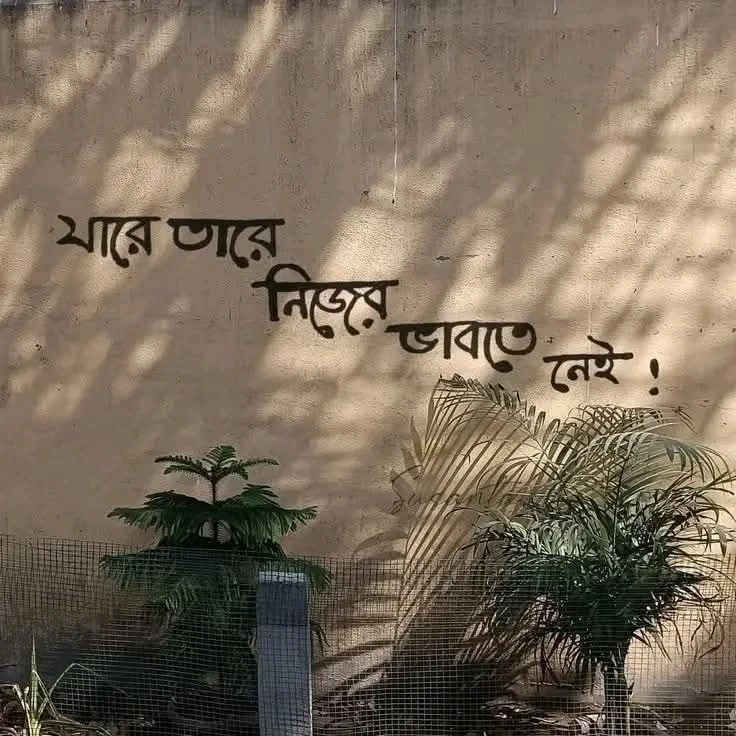 যারে তারে
নিজের
ভাবতে
নেই !